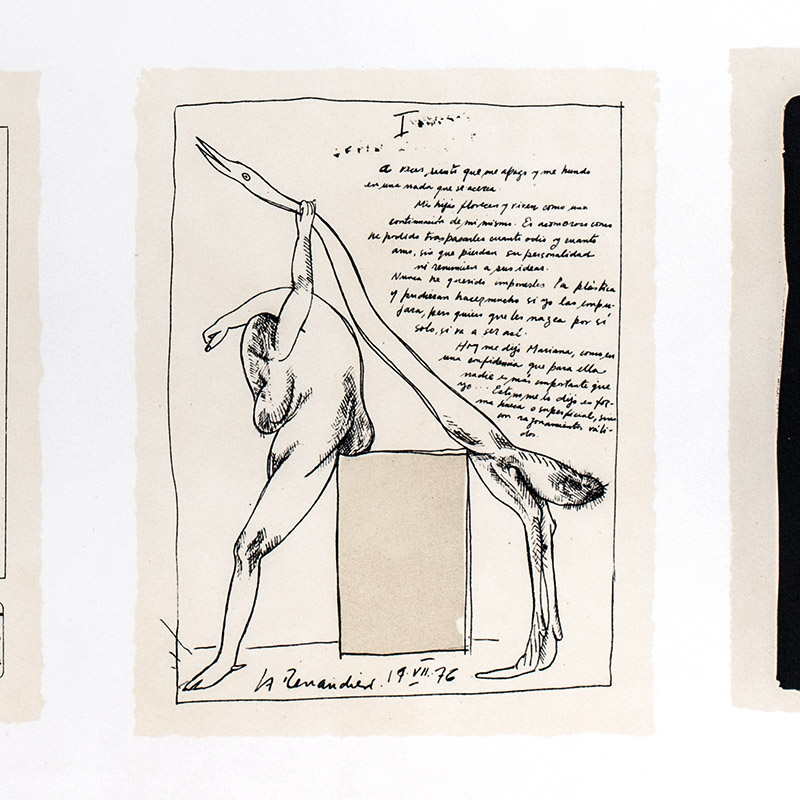 I
A veces, siento que me apago y me hundo
en una nada que se acerca
Mis hijas florecen y viven como una
continuación de mi mismo. Es asombroso como
he podido traspasarles cuanto odio y cuanto
amo, sin que pierdan su personalidad
ni renuncien a sus ideas.
Nunca he querido imponerles la plástica
y pudieran hacer mucho si yo las empu-
jara, pero quiero que les nazca por sí
solo, si va a ser así.
Hoy me dijo Mariana, como en
una confidencia que para ella
nadie es más importante que
yo... me lo dijo en for-
ma hueca o superficial, sino
con razonamientos váli-
dos.
La Renaudière 19.VII.76